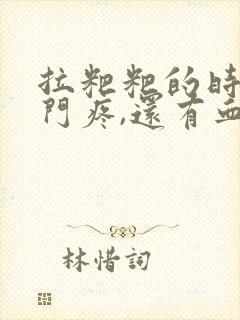 拉粑粑的時
門疼,還有血
林惜詞